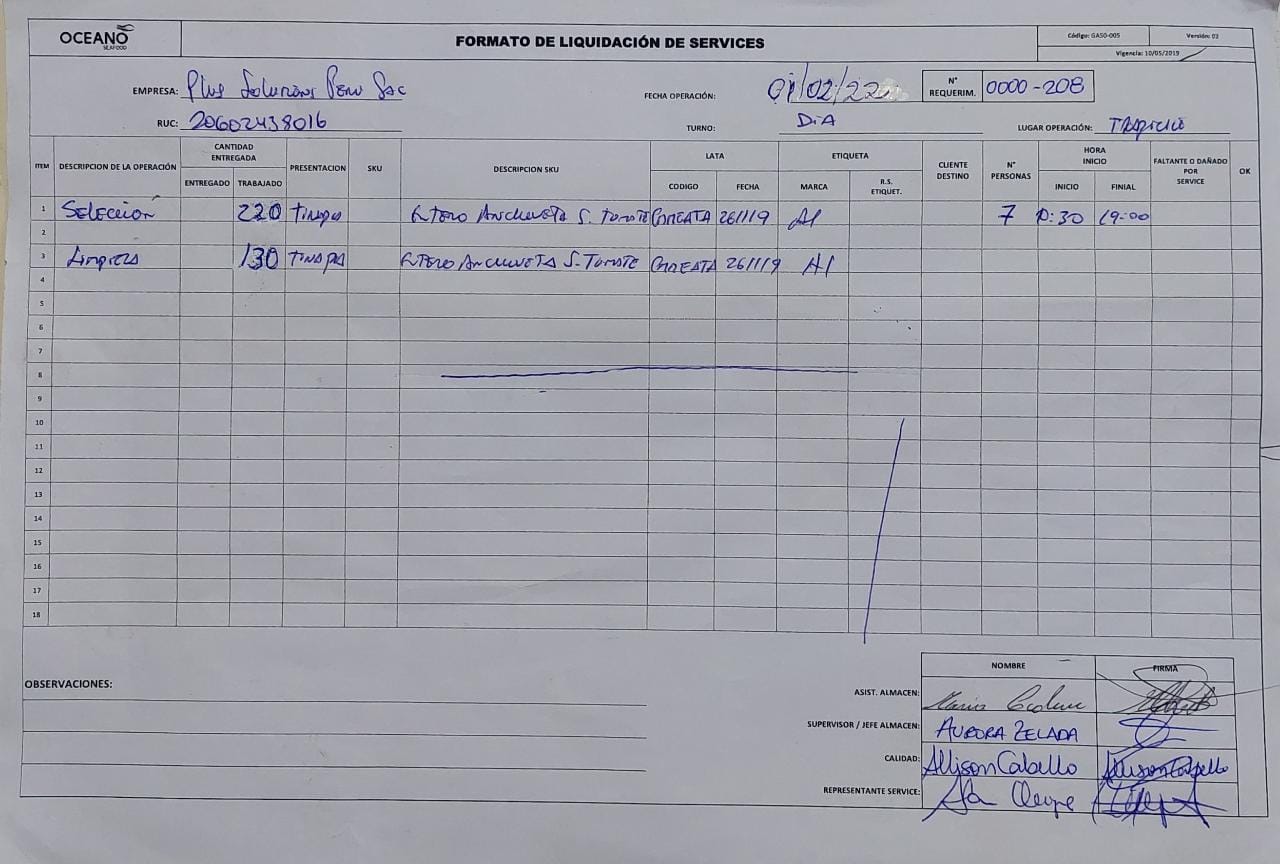 OCEANO
SEAFOOD
FORMATO DE LIQUIDACIÓN DE SERVICES
Código: GASO-005 Versión: 02
Vigencia: 10/05/2019
EMPRESA: Plus Solutions Peru Sac
FECHA OPERACIÓN: 01/02/22
N° REQUERIM. 0000-208
RUC: 20602438016
TURNO: DiA
LUGAR OPERACIÓN:
ITEM DESCRIPCION DE LA OPERACIÓN CANTIDAD ENTREGADA PRESENTACION SKU DESCRIPCION SKU LATA ETIQUETA CLIENTE DESTINO N° PERSONAS HORA INICIO FALTANTE O DAÑADO POR SERVICE OK
ENTREGADO TRABAJADO CODIGO FECHA MARCA R.S. ETIQUET. INICIO FINIAL
1 Selección 220 Tinapa Entero Anchoveta S. Tomate 261119 A1 7 :30 19:00
2
3 Limpieza 130 TINAPA Entero ANCHOVETA S. TOMATE 261119 A1
4
5
6
7
8
9
10
11
12
13
14
15
16
17
18
NOMBRE FIRMA
OBSERVACIONES:
ASIST. ALMACEN: Maria
SUPERVISOR / JEFE ALMACEN: AURORA ZELADA
CALIDAD: Allison Cabello Allison Cabello
REPRESENTANTE SERVICE: